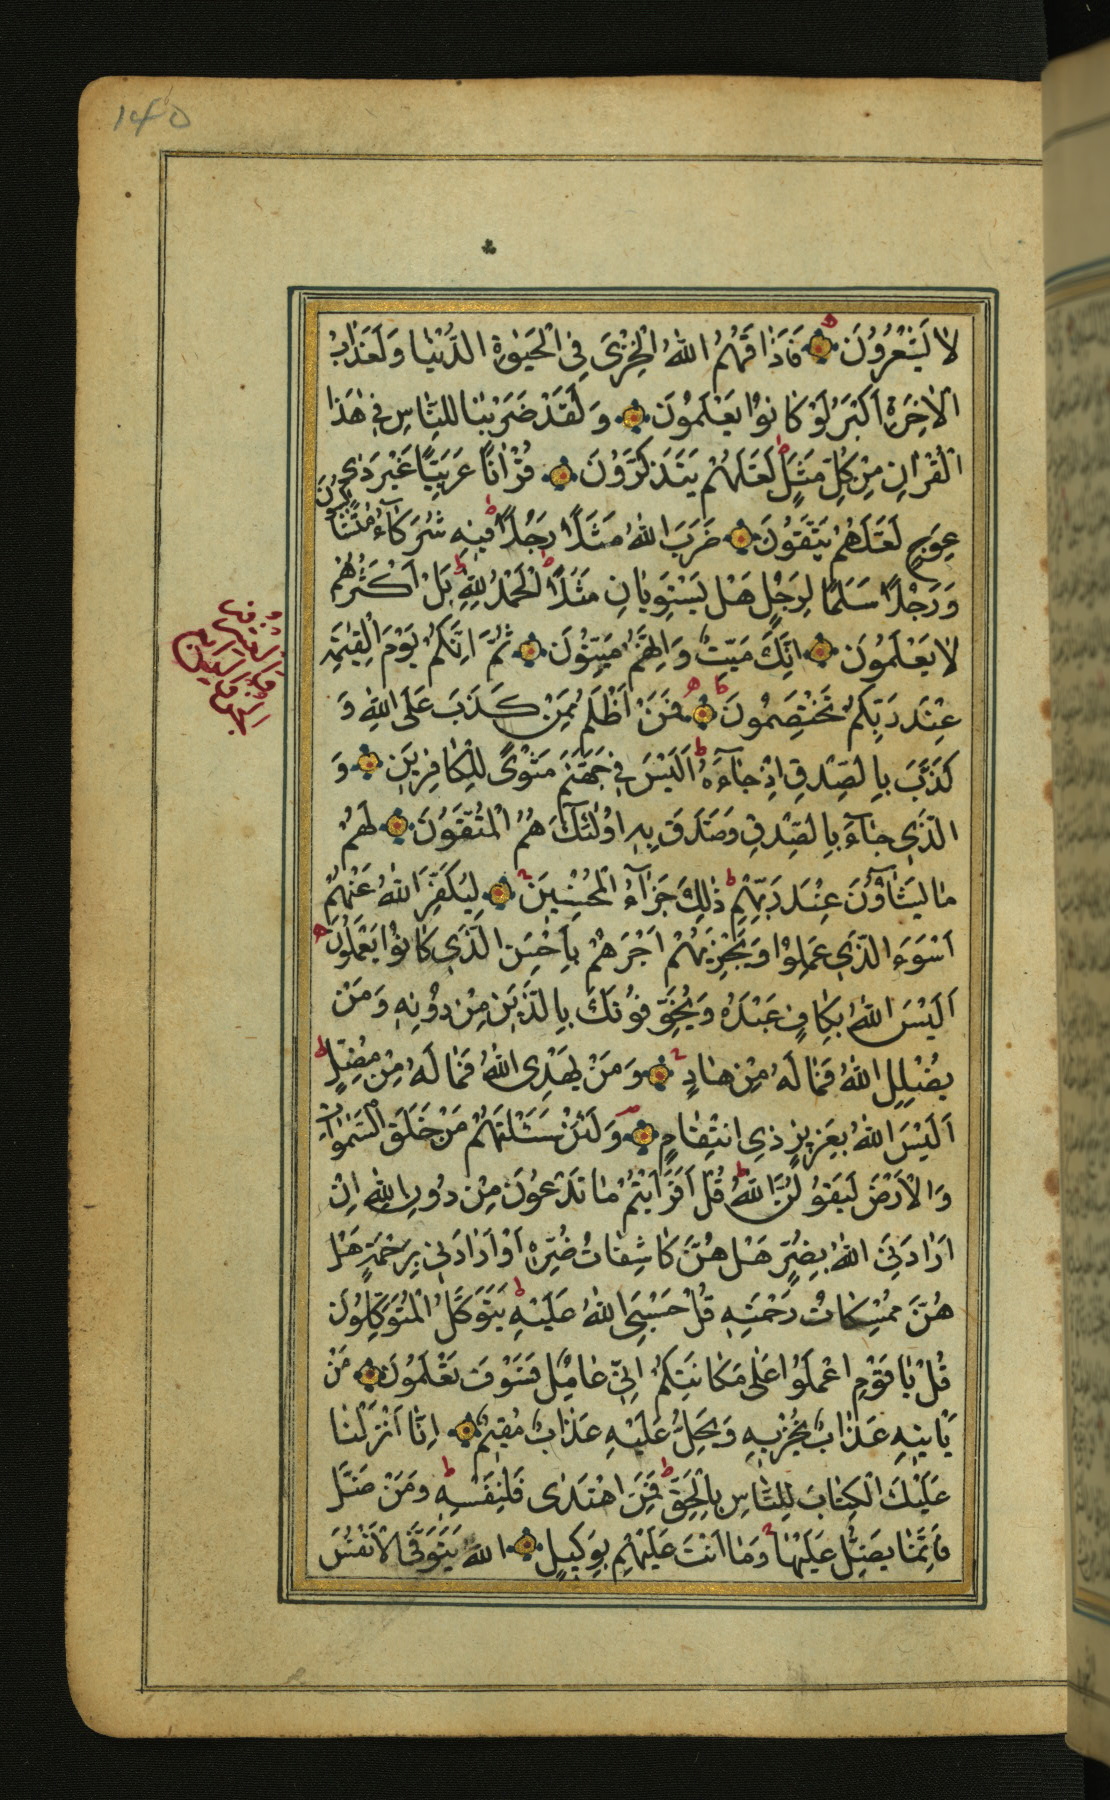 لا يَشْعُرُونَ فَأَذَاقَهُمُ اللهُ الْخِزْيَ فِي الْحَيٰوةِ الدُّنْيَا وَلَعَذَابُ
الْاٰخِرَةِ اَكْبَرُ لَوْ كَانُوا يَعْلَمُونَ وَلَقَدْ ضَرَبْنَا لِلنَّاسِ فِي هٰذَا
الْقُرْاٰنِ مِنْ كُلِّ مَثَلٍ لَعَلَّهُمْ يَتَذَكَّرُونَ قُرْاٰنًا عَرَبِيًّا غَيْرَ ذِي
عِوَجٍ لَعَلَّهُمْ يَتَّقُونَ ضَرَبَ اللهُ مَثَلًا رَجُلًا فِيهِ شُرَكَآءُ مُتَشَاكِسُونَ
وَرَجُلًا سَلَمًا لِرَجُلٍ هَلْ يَسْتَوِيَانِ مَثَلًا الْحَمْدُ لِلّٰهِ بَلْ اَكْثَرُهُمْ
لا يَعْلَمُونَ اِنَّكَ مَيِّتٌ وَاِنَّهُمْ مَيِّتُونَ ثُمَّ اِنَّكُمْ يَوْمَ الْقِيٰمَةِ
عِنْدَ رَبِّكُمْ تَخْتَصِمُونَ فَمَنْ اَظْلَمُ مِمَّنْ كَذَبَ عَلَى اللهِ وَ
كَذَّبَ بِالصِّدْقِ اِذْ جَآءَهُ اَلَيْسَ فِي جَهَنَّمَ مَثْوًى لِلْكَافِرِينَ وَ
الَّذِي جَآءَ بِالصِّدْقِ وَصَدَّقَ بِهِ اُولٰئِكَ هُمُ الْمُتَّقُونَ لَهُمْ
مَا يَشَآؤُنَ عِنْدَ رَبِّهِمْ ذٰلِكَ جَزَآءُ الْمُحْسِنِينَ لِيُكَفِّرَ اللهُ عَنْهُمْ
اَسْوَءَ الَّذِي عَمِلُوا وَيَجْزِيَهُمْ اَجْرَهُمْ بِاَحْسَنِ الَّذِي كَانُوا يَعْمَلُونَ
اَلَيْسَ اللهُ بِكَافٍ عَبْدَهُ وَيُخَوِّفُونَكَ بِالَّذِينَ مِنْ دُونِهِ وَمَنْ
يُضْلِلِ اللهُ فَمَا لَهُ مِنْ هَادٍ وَمَنْ يَهْدِي اللهُ فَمَا لَهُ مِنْ مُضِلٍّ
اَلَيْسَ اللهُ بِعَزِيزٍ ذِي انْتِقَامٍ وَلَئِنْ سَئَلْتَهُمْ مَنْ خَلَقَ السَّمٰوَاتِ
وَالْاَرْضَ لَيَقُولُنَّ اللهُ قُلْ اَفَرَاَيْتُمْ مَا تَدْعُونَ مِنْ دُونِ اللهِ اِنْ
اَرَادَنِيَ اللهُ بِضُرٍّ هَلْ هُنَّ كَاشِفَاتُ ضُرِّهِ اَوْ اَرَادَنِي بِرَحْمَةٍ هَلْ
هُنَّ مُمْسِكَاتُ رَحْمَتِهِ قُلْ حَسْبِيَ اللهُ عَلَيْهِ يَتَوَكَّلُ الْمُتَوَكِّلُونَ
قُلْ يَا قَوْمِ اعْمَلُوا عَلٰى مَكَانَتِكُمْ اِنِّي عَامِلٌ فَسَوْفَ تَعْلَمُونَ مَنْ
يَاْتِيهِ عَذَابٌ يُخْزِيهِ وَيَحِلُّ عَلَيْهِ عَذَابٌ مُقِيمٌ اِنَّا اَنْزَلْنَا
عَلَيْكَ الْكِتَابَ لِلنَّاسِ بِالْحَقِّ فَمَنِ اهْتَدٰى فَلِنَفْسِهِ وَمَنْ ضَلَّ
فَاِنَّمَا يَضِلُّ عَلَيْهَا وَمَا اَنْتَ عَلَيْهِمْ بِوَكِيلٍ اللهُ يَتَوَفَّى الْاَنْفُسَ